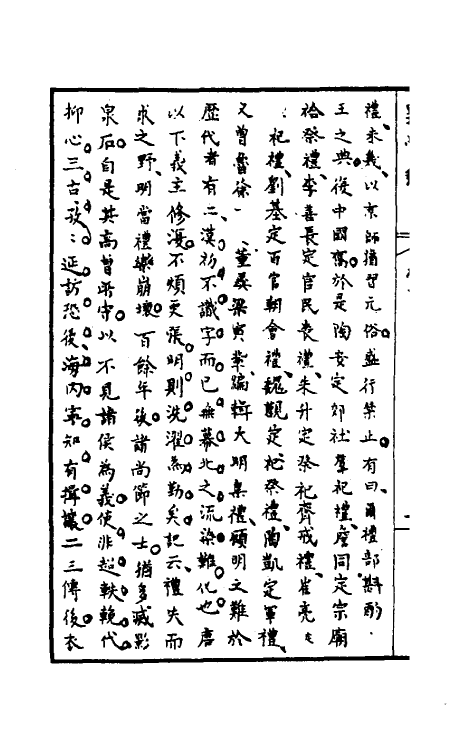 禮、未幾、以京師猶習元俗盛行禁止、有曰、爾禮部斟酌
王之典復中國舊於是陶安定郊社羣祀禮、詹同定宗廟
祫祭禮、李善長定官民喪禮、朱升定祭祀齊戒禮、崔亮
祀禮、劉基定百官朝會禮、魏觀定祀祭禮、陶凱定軍禮、
又曾魯徐一、董彝梁寅輩編輯大明集禮、顧明之難於
歷代者有二、漢初不識字而已無幕北之流染難化也唐
以下義主修復不煩更張明則洗濯為勤矣記云、禮失而
求之野、明當禮樂崩壞百餘年後諸尚節之士猶多滅影
泉石自是其高曾所守以不見諸侯為義使非超軼晚代
抑心三古孜々延訪恐後海内寧知有揖讓二三傳後衣